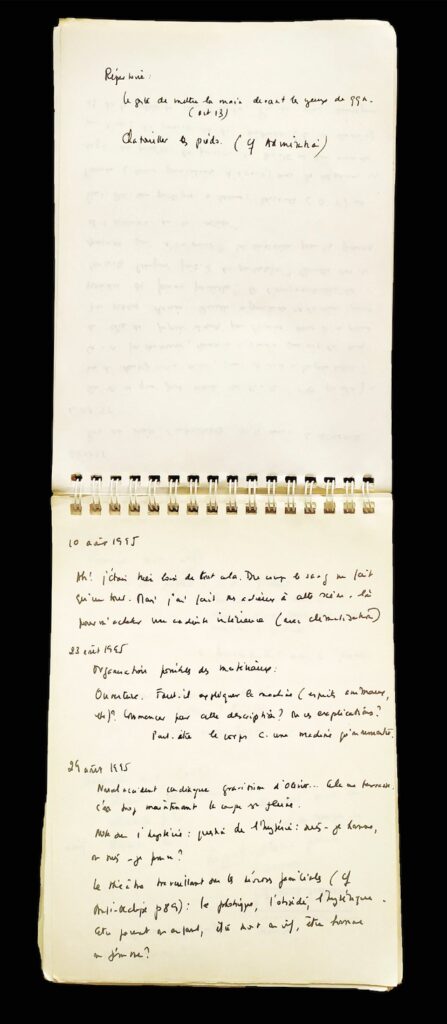 Répertoire :
Le geste de mettre la main devant les yeux de qqn.
(acte 13)
Chatouiller les pieds. (cf Admiration)
10 août 1995
Ah ! j'étais très loin de tout cela. Du coup le sang ne fait
qu'un tour. Mais j'ai fait mes adieux à cette scène-là
pour m'acheter une scène intérieure (avec climatisation)
23 août 1995
Organisation possible des matériaux :
Ouverture. Faut-il expliquer la machine (esprits animaux,
etc)? Commencer par cette description? Ou ces explications?
Peut-être le corps c. une machine qu'on monte.
29 août 1995
accident cardiaque gravissime d'Olivier... Cela me terrasse.
C'est trop maintenant le corps se
Note sur l'hystérie : question de l'hystérie : suis-je homme,
ou suis-je femme?
Le théâtre travaillant sur les névroses familiales (cf
Anti-Oedipe p89) : le phobique, l'obsédé, l'hystérique.
Etre parent ou enfant, être mort ou vif, être homme
ou femme?